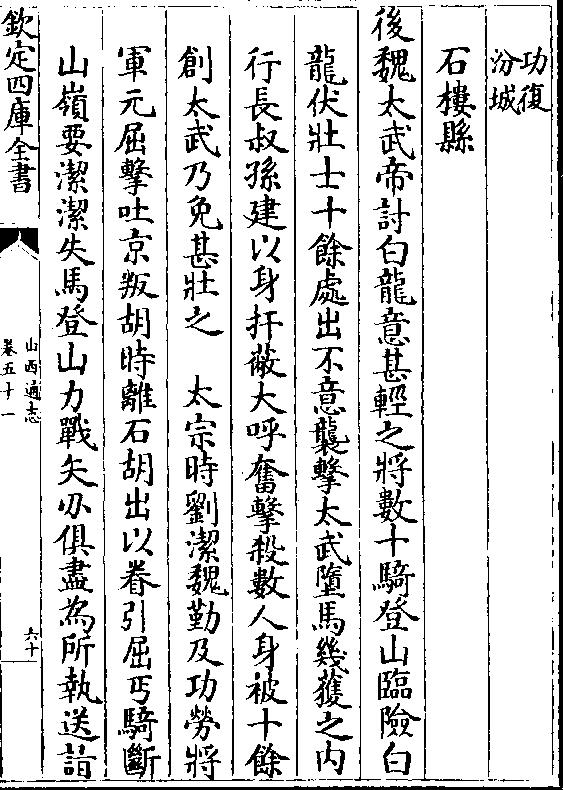 功復
汾城
石樓縣
後魏太武帝討白龍意甚輕之將數十騎登山臨險白
龍伏壯士十餘處出不意襲擊太武墮馬幾獲之内
行長叔孫建以身扞蔽大呼奮擊殺數人身被十餘
創太武乃免甚壯之　太宗時劉潔魏勤及功勞將
軍元屈擊吐京叛胡時離石胡出以眷引屈丐騎斷
山嶺要潔潔失馬登山力戰矢刃俱盡為所執送詣
欽定四庫全書
山西通志
卷五十一
六十